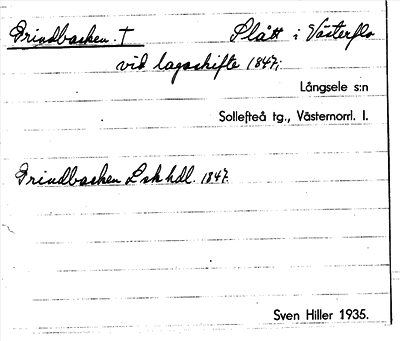 Grindbacken. † Slått i Västerflo
vid lagaskifte 1847;
Långsele s:n
Sollefteå tg., Västernorrl. l.
Grindbacken Lskhdl. 1847.
Sven Hiller 1935.